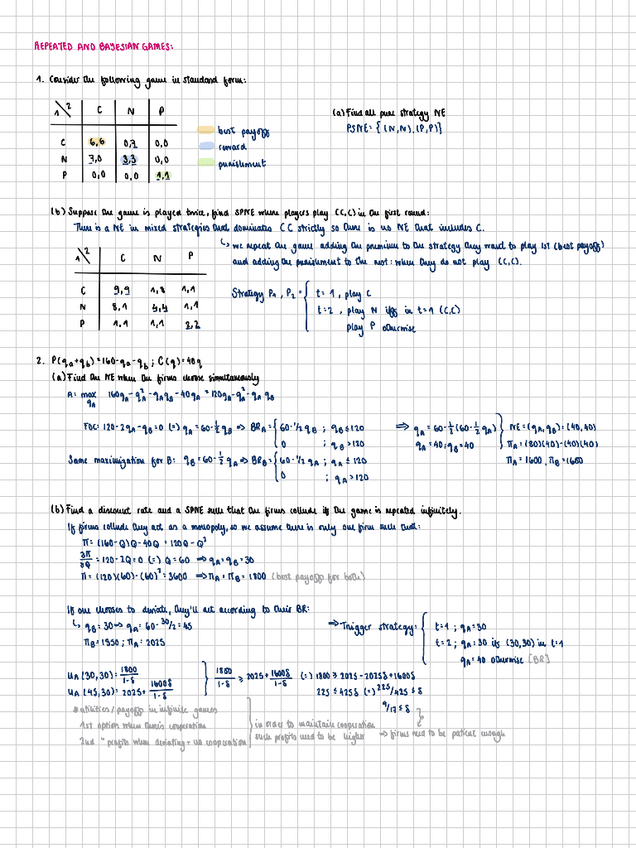 REPEATED AND BAYESIAN GAMES:
1. Consider the following game in standard form:
1\2 C N P
C 6,6 0,7 0,0
N 7,0 3,3 0,0
P 0,0 0,0 1,1
best payoff
reward
punishment
(a) Find all pure strategy NE
PSNE = {(N,N),(P,P)}
(b) Suppose the game is played twice, find SPNE where players play (C,C) in the first round:
There is a NE in mixed strategies that dominates CC strictly so there is no NE that includes C.
↳ we repeat the game adding the premium to the strategy they want to play 1st (best payoff)
and adding the punishment to the rest: when they do not play (C,C).
1\2 C N P
C 9,9 1,8 1,1
N 8,1 4,4 1,1
P 1,1 1,1 2,2
Strategy P1, P2 = { t=1, play C
t=2, play N iff in t=1 (C,C)
play P otherwise
2. P(qa+qb)=160-qa-qb; C(q)=40q
(a) Find the NE when the firms choose simultaneously
A: max 160qA-qA²-qAqB-40qA = 120qA-qA²-qAqB
qA
FOC: 120-2qA-qB=0 (=) qA=60-½qB ⇒ BRA = { 60-½qB ; qB≤120
0 ; qB>120
Same maximization for B: qB=60-½qA ⇒ BRB = { 60-½qA ; qA≤120
0 ; qA>120
⇒ qA=60-½(60-½qA)
qA=40; qB=40
NE=(qA,qB)=(40,40)
πA=(80)(40)-(40)(40)
πA=1600, πB=1600
(b) Find a discount rate and a SPNE such that the firms collude if the game is repeated infinitely.
If firms collude they act as a monopoly, so we assume there is only one firm such that:
π=(160-Q)Q-40Q=120Q-Q²
∂π/∂Q=120-2Q=0 (=) Q=60 ⇒ qA=qB=30
π=(120)(60)-(60)²=3600 ⇒ πA=πB=1800 (best payoff for both)
If one chooses to deviate, they'll act according to their BR:
↳ qB=30 ⇒ qA=60-30/2=45
πB=1350; πA=2025
⇒ Trigger strategy: { t=1; qA=30
t=2; qA=30 if (30,30) in t=1
qA=40 otherwise [BR]
UA(30,30)=1800/1-δ
UA(45,30)=2025+1600δ/1-δ
1800/1-δ ≥ 2025+1600δ/1-δ (=) 1800≥2025-2025δ+1600δ
225≤425δ (=) 225/425≤δ
9/17≤δ
utilities/payoff in infinite games
1st option when there's cooperation
2nd " profits when deviating + no cooperation
in order to maintain cooperation
such profits need to be higher
⇒ firms need to be patient enough